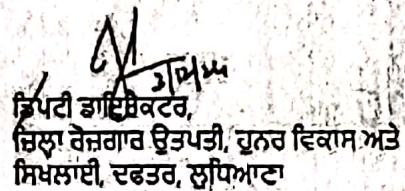 ਡਿਪਟੀ ਡਾਇਰੈਕਟਰ,
ਜ਼ਿਲ੍ਹਾ ਰੋਜ਼ਗਾਰ ਉਤਪਤੀ, ਹੁਨਰ ਵਿਕਾਸ ਅਤੇ
ਸਿਖਲਾਈ, ਦਫਤਰ, ਲੁਧਿਆਣਾ